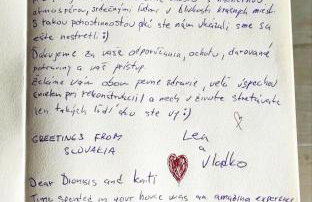 atmosférou, srdečnými ľuďmi, v blízkosti krásnych
S takou pohostinnosťou akú ste nám ukázali sme sa
ešte nestretli :)
Ďakujeme za vaše odporúčania, ochotu, darované
potraviny a váš prístup.
Želáme vám obom pevné zdravie, veľa úspechov
(nielen pri rekonštrukcii) a nech v živote stretávate
len takých ľudí ako ste vy :)
GREETINGS FROM
SLOVAKIA
Lea
a
Vladko
Dear Dionisis and Kati
Time spented in your home was an amazing experience